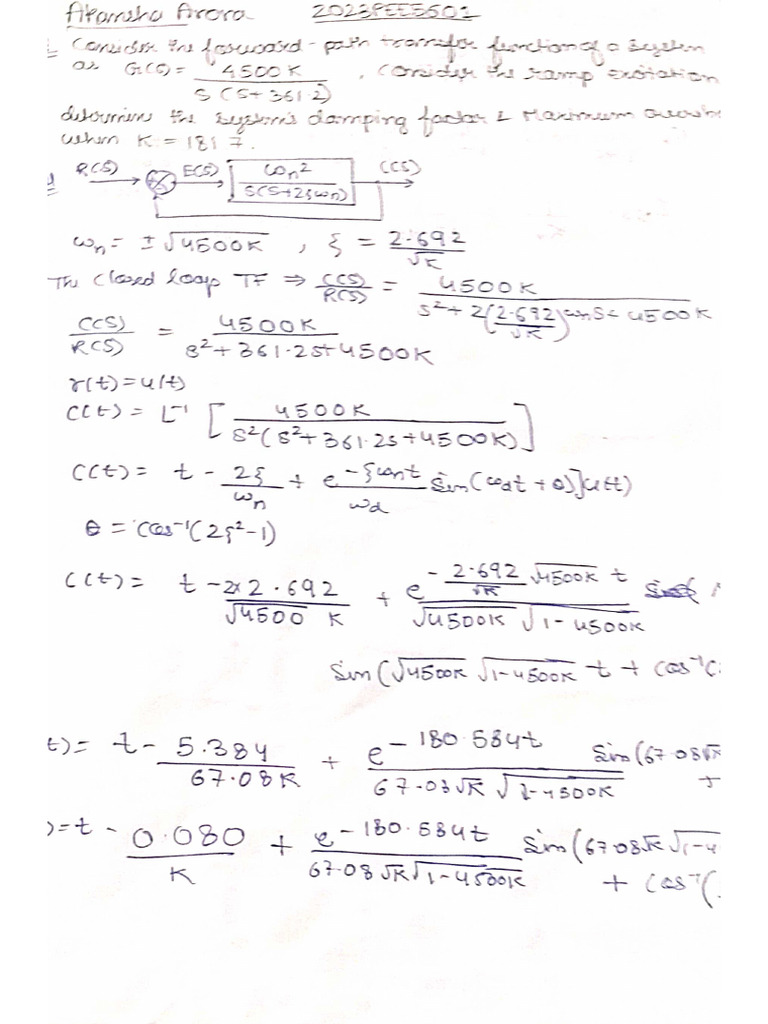 Akansha Arora 2023PEE5501
Consider the forward-path transfer function of a system
as G(s) = 4500K / S(S+361.2) , Consider the ramp excitation
determine the system's damping factor & Maximum
when K = 181 7.
R(S) E(S) ωn² / S(S+2ξωn) C(S)
ωn = ± √4500K , ξ = 2.692 / √K
The Closed loop TF ⇒ C(S) / R(S) = 4500K / S² + 2(2.692 / √K)ωnS + 4500K
C(S) / R(S) = 4500K / S² + 361.2S + 4500K
r(t) = u(t)
C(t) = L⁻¹ [ 4500K / S²(S² + 361.2S + 4500K) ]
C(t) = t - 2ξ / ωn + e^-ξωnt / ωd Sin(ωdt + θ)]u(t)
θ = cos⁻¹(2ξ²-1)
C(t) = t - 2x2.692 / √4500 K + e^- 2.692 / √K √4500K t / √4500K √1-4500K
Sin(√4500K √1-4500K t + cos⁻¹(
t) = t - 5.384 / 67.08K + e^-180.584t / 67.03√K √1-4500K Sin(67.08√K
+
) = t - 0.080 / K + e^-180.584t / 67.08√K √1-4500K Sin(67.08√K √1-4
+ cos⁻¹(